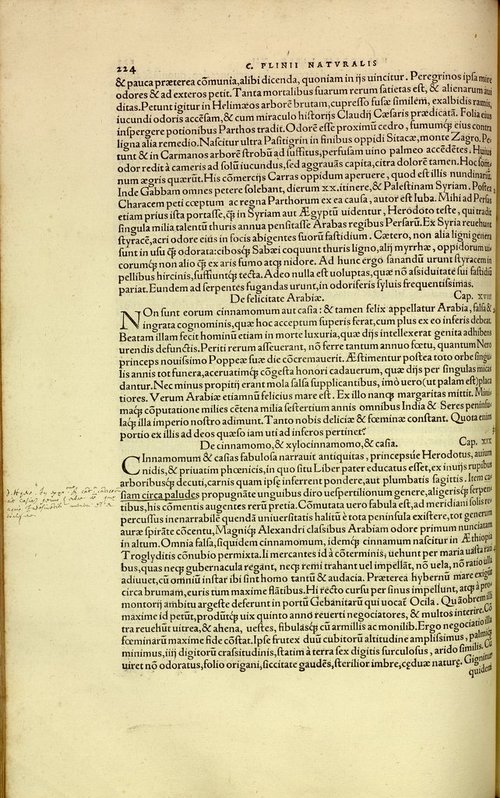 224 C. PLINII NATVRALIS
& pauca præterea cõmunia, alibi dicenda, quoniam in ijs uincitur. Peregrinos ipsa mire
odores & ad exteros petit. Tanta mortalibus suarum rerum satietas est, & alienarum aui
ditas. Petunt igitur in Helimæos arborẽ brutam, cupresso fusæ similem, exalbidis ramis,
iucundi odoris accẽsam, & cum miraculo historijs Claudij Cæsaris prædicatã. Folia eius
inspergere potionibus Parthos tradit. Odorẽ esse proximũ cedro, fumumq́; eius contra
ligna alia remedio. Nascitur ultra Pasitigrin in finibus oppidi Sitacæ, monte Zagro. Pe
tunt & in Carmanos arborẽ strobũ ad suffitus, perfusam uino palmeo accẽdẽtes. Huius
odor redit à cameris ad solũ iucundus, sed aggrauãs capita, citra dolorẽ tamen. Hoc som
num ægris quærũt. His cõmercijs Carras oppidum aperuere, quod est illis nundinariũ.
Inde Gabbam omnes petere solebant, dierum xx. itinere, & Palestinam Syriam. Postea
Characem peti cœptum ac regna Parthorum ex ea causa, autor est Iuba. Mihi ad Persas
etiam prius ista portasse, q̃ in Syriam aut Ægyptũ uidentur, Herodoto teste, qui tradit
singula milia talentũ thuris annua pensitasse Arabas regibus Persarũ. Ex Syria reuehunt
styracẽ, acri odore eius in focis abigentes suorũ fastidium. Cætero, non alia ligni genera
sunt in usu q̃ odorata: cibosq́; Sabæi coquunt thuris ligno, alij myrrhæ, oppidorum ui
corumq́; non alio q̃ ex aris fumo atq; nidore. Ad hunc ergo sanandũ urunt styracem in
pellibus hircinis, suffiuntq́; tecta. Adeo nulla est uoluptas, quæ nõ assiduitate sui fastidiũ
pariat. Eundem ad serpentes fugandas urunt, in odoriferis syluis frequentissimas.
De felicitate Arabiæ. Cap. XVIII
NOn sunt eorum cinnamomum aut casia: & tamen felix appellatur Arabia, falsa &
ingrata cognominis, quæ hoc acceptum superis ferat, cum plus ex eo inferis debeat.
Beatam illam fecit hominũ etiam in morte luxuria, quæ dijs intellexerat genita adhibens
urendis defunctis. Periti rerum asseuerant, nõ ferre tantum annuo fœtu, quantum Nero
princeps nouissimo Poppeæ suæ die cõcremauerit. Æstimentur postea toto orbe singu
lis annis tot funera, aceruatimq́; cõgesta honori cadauerum, quæ dijs per singulas micas
dantur. Nec minus propitij erant mola salsa supplicantibus, imò uero (ut palam est) placa
tiores. Verum Arabiæ etiamnũ felicius mare est. Ex illo nanq; margaritas mittit. Mini
maq́; cõputatione milies cẽtena milia sestertium annis omnibus India & Seres peninsu
laq́; illa imperio nostro adimunt. Tanto nobis deliciæ & fœminæ constant. Quota enim
portio ex illis ad deos quæso iam uti ad inferos pertinet?
De cinnamomo, & xylocinnamomo, & casia. Cap. XIX
CInnamomum & casias fabulosa narrauit antiquitas, princepsue Herodotus, auium
nidis, & priuatim phœnicis, in quo situ Liber pater educatus esset, ex inuijs rupibus
arboribusq́; decuti, carnis quam ipsæ inferrent pondere, aut plumbatis sagittis. Item ca
siam circa paludes propugnãte unguibus diro uespertilionum genere, aligerisq́; serpen
tibus, his cõmentis augentes rerũ pretia. Cõmutata uero fabula est, ad meridiani solis re
percussus inenarrabilẽ quendã uniuersitatis halitũ è tota peninsula existere, tot generum
auræ spirãte cõcentu, Magniq́; Alexandri classibus Arabiam odore primum nunciatam
in altum. Omnia falsa, siquidem cinnamomum, idemq; cinnamum nascitur in Æthiopia
Troglyditis cõnubio permixta. Ii mercantes id à cõterminis, uehunt per maria uasta rati
bus, quas neq; gubernacula regant, neq; remi trahant uel impellãt, nõ uela, nõ ratio ulla
adiuuet, cũ omniũ instar ibi sint homo tantũ & audacia. Præterea hybernũ mare exigũt
circa brumam, euris tum maxime flãtibus. Hi recto cursu per sinus impellunt, atq; à pro
montorij ambitu argeste deferunt in portũ Gebanitarũ qui uocat̃ Ocila. Quãobrem illi
maxime id petũt, produntq́; uix quinto anno reuerti negociatores, & multos interire. Cõ
tra reuehũt uitrea, & ahena, uestes, fibulasq́; cũ armillis ac monilib. Ergo negociatio illa
fœminarũ maxime fide cõstat. Ipse frutex duũ cubitorũ altitudine amplissimus, palmiq́;
minimus, iiij digitorũ crassitudinis, statim à terra sex digitis surculosus, arido similis. Cũ
uiret nõ odoratus, folio origani, siccitate gaudẽs, sterilior imbre, cęduæ naturę. Gignitur
quidem